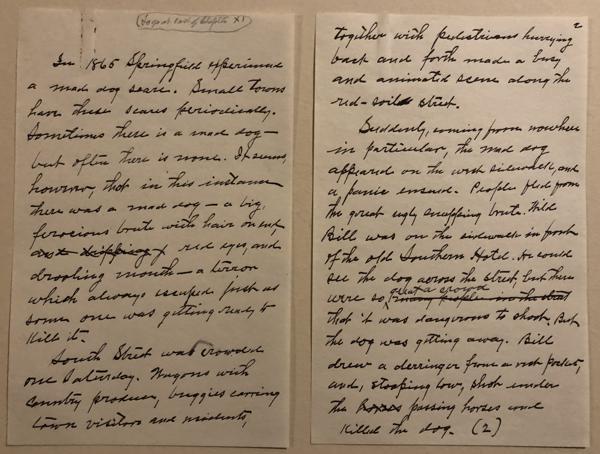 In 1865 Springfield experienced
a mad dog scare. Small towns
have these scares periodically.
Sometimes there is a mad dog—
but often there is none. It seems,
however, that in this instance
there was a mad dog — a big,
ferocious brute with hair on end,
and dripping red eyes, and
drooling mouth — a terror
which always escaped just as
some one was getting ready to
kill it.
South Street was crowded
one Saturday. Wagons with
country produce, buggies carrying
town visitors and residents,
2
together with pedestrians hurrying
back and forth made a busy
and animated scene along the
red-soiled street.
Suddenly, coming from nowhere
in particular, the mad dog
appeared on the west sidewalk, and
a panic ensued. People fled from
the great ugly snapping brute. Wild
Bill was on the sidewalk in front
of the old Southern Hotel. He could
see the dog across the street, but there
great a crowd
were so many people in the street
that it was dangerous to shoot. But
the dog was getting away. Bill
drew a derringer from a vest pocket,
and, stooping low, shot under
the horses passing horses and
killed the dog. (2)